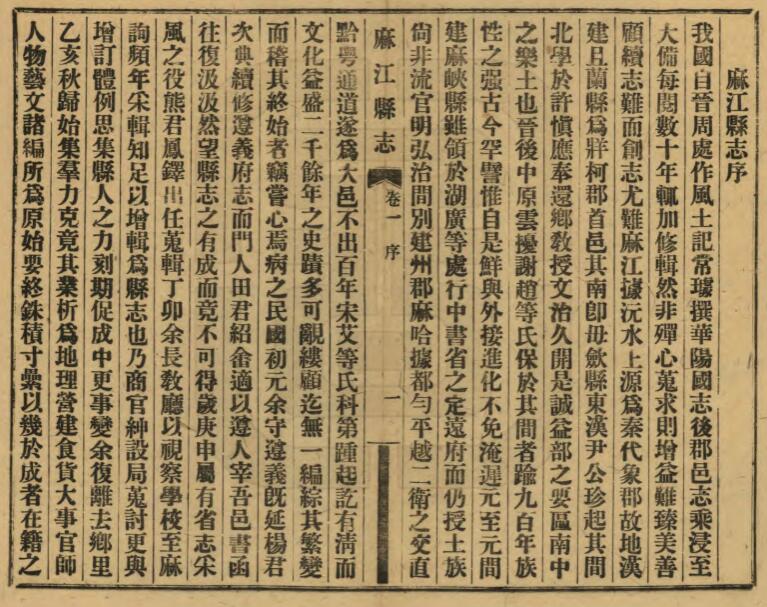 麻江縣志序
我國自晉周處作風土記常璩撰華陽國志後郡邑志乘浸至
大備每閱數十年輒加修輯然非殫心蒐求則增益難臻美善
顧續志難而創志尤難麻江據沅水上源爲秦代象郡故地漢
建且蘭縣爲牂柯郡首邑其南卽毋斂縣東漢尹公珍起其間
北學於許愼應奉還鄉敎授文治久開是誠益部之要區南中
之樂土也晉後中原雲擾謝趙等氏保於其間者踰九百年族
性之强古今罕譬惟自是鮮與外接進化不免淹遲元至元間
建麻峽縣雖領於湖廣等處行中書省之定遠府而仍授土族
尙非流官明弘治間別建州郡麻哈據都勻平越二衛之交直
麻江縣志
卷一 序
一
黔粤通道遂爲大邑不出百年宋艾等氏科第踵起訖有淸而
文化益盛二千餘年之史蹟多可覼縷顧迄無一編綜其繁變
而稽其終始者竊嘗心焉病之民國初元余守遵義旣延楊君
次典續修遵義府志而門人田君紹畬適以遵人宰吾邑書函
往復汲汲然望縣志之有成而竟不可得歲庚申屬有省志采
風之役熊君鳳鐸出任蒐輯丁卯余長敎廳以視察學校至麻
詢頻年采輯知足以增輯爲縣志也乃商官紳設局蒐討更與
增訂體例思集縣人之力刻期促成中更事變余復離去鄉里
乙亥秋歸始集羣力克竟其業析爲地理營建食貨大事官師
人物藝文諸編所爲原始要終銖積寸纍以幾於成者在籍之